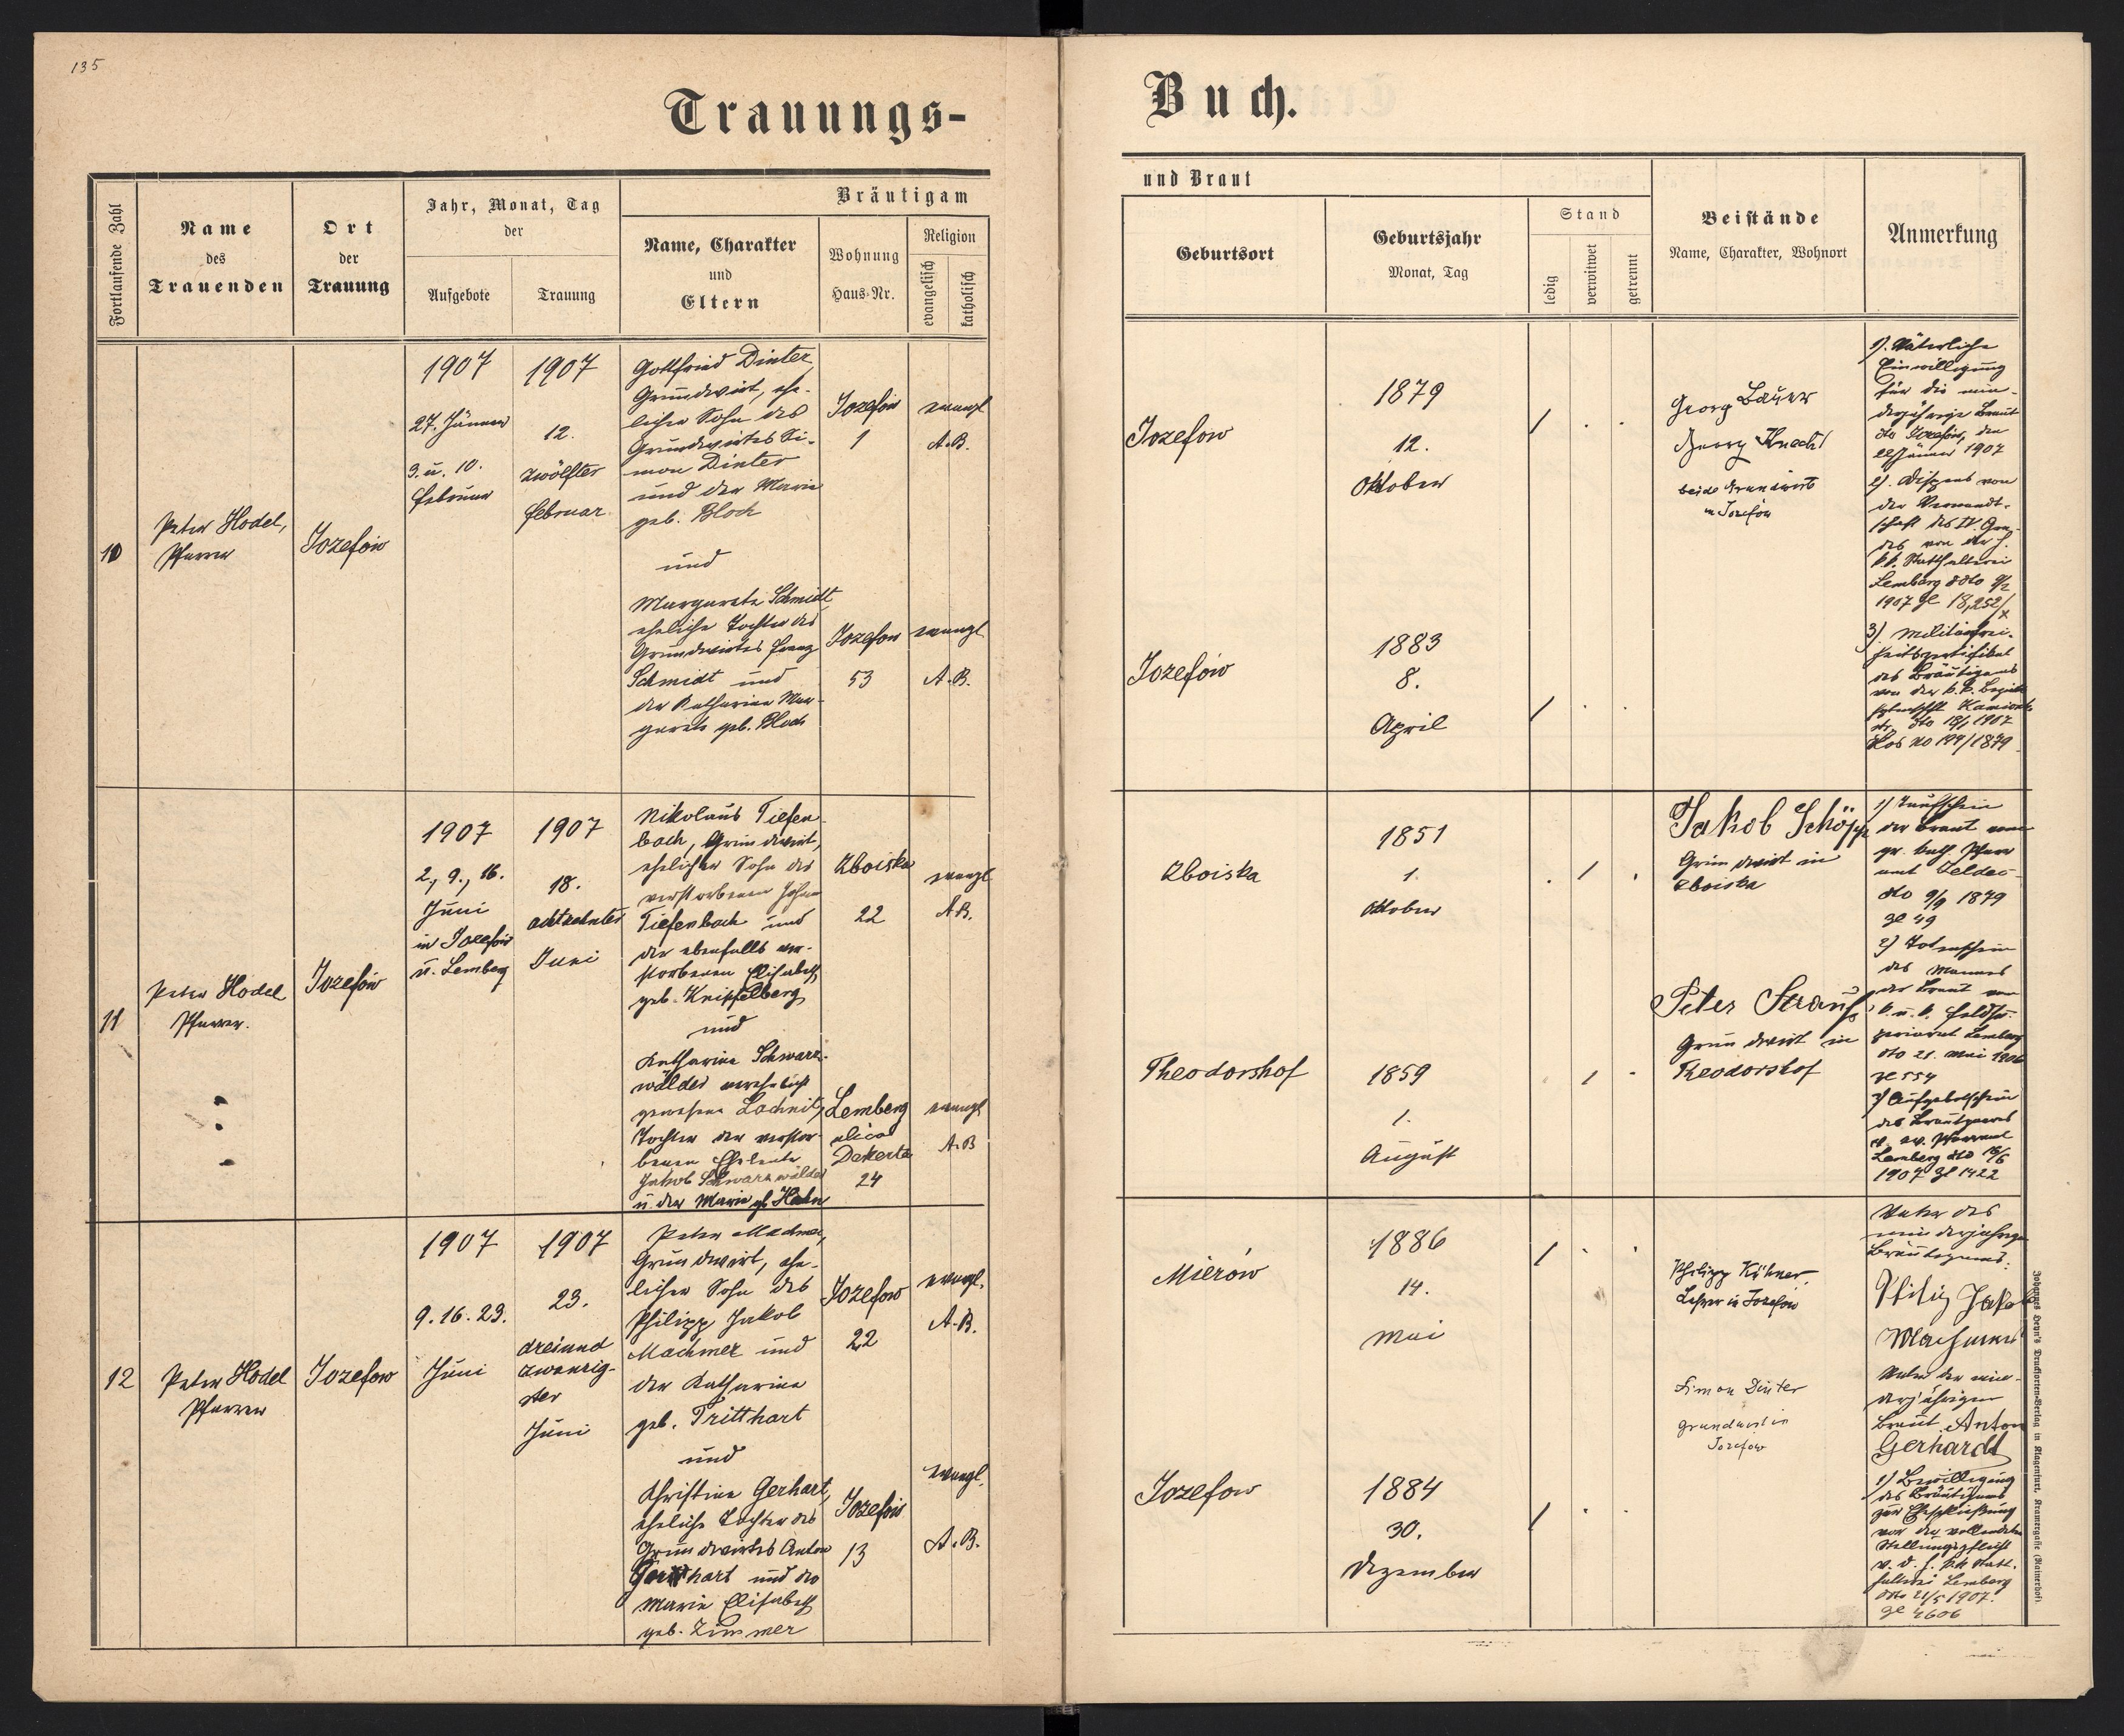 135
Trauungs-
Buch.
Fortlaufende Zahl
Name
des
Trauenden
Ort
der
Trauung
Jahr, Monat, Tag
der
Aufgebote
Trauung
Bräutigam
Name, Charakter
und
Eltern
Wohnung
Haus-Nr.
Religion
evangelisch
katholisch
und Braut
Geburtsort
Geburtsjahr
Monat, Tag
Stand
ledig
verwitwet
getrennt
Beistände
Name, Charakter, Wohnort
Anmerkung
10
Peter Hodel,
Pfarrer
Jozefów
1907
27. Jänner
3. u. 10.
Februar
1907
12.
zwölfter
Februar
Gottfried Dinter,
Grundwirt, ehe-
licher Sohn des
Grundwirtes Si-
mon Dinter
und der Marie
geb. Bloch
und
Margareta Schmidt,
eheliche Tochter des
Grundwirtes Franz
Schmidt und
der Katharina Mar-
gareta geb. Bloch
Jozefów
1
evangl
A.B.
Jozefow
53
evangl
A.B.
Jozefow
1879
12.
Oktober
Jozefów
1883
8.
April
Georg Bauer
Georg Knecht
beide Grundwirte
in Jozefów
1). Väterliche
Einwilligung
für die min-
derjährige Braut
dto Jozefów, den
Jänner 1907
2). Dispens von
der Verwandt-
schaft des IV. Gra-
des von der h.
k.k. Statthalterei
Lemberg ddto 9/2
1907 Zl 18,252/X
3). Militärfrei-
heitszertifikat
des Bräutigams
von der k.k. Bezirks
Kamionka
str. dto 18/1 1907
Los No 199/1879
11
Peter Hodel
Pfarrer.
Jozefów
1907
2., 9., 16.
Juni
in Jozefów
u. Lemberg
1907
18.
achtzehnter
Juni
Nikolaus Tiefen-
bach, Grundwirt,
ehelicher Sohn des
verstorbenen Johann
Tiefenbach und
der ebenfalls ver-
storbenen Elisabeth
geb. Knipfelberg
und
Katharina Schwarz-
wälder verehelicht
gewesene Lachnit,
Tochter der verstor-
benen Eheleute
Jakob Schwarzwälder
u. der Marie gb. Hahn
Zboiska
22
evangl
A.B.
Lemberg
ulica
Dekerta
24
evangl
A.B
Zboiska
1851
1.
Oktober
Theodorshof
1859
1.
August
Jakob Schöpp
Grundwirt in
Zboiska
Peter Strauß
Grundwirt in
Theodorshof
1) Taufschein
der Braut vom
gr. kath. Pfarr
amt Zeldec
dto 9/9 1879
Zl 49
2) Totenschein
des Mannes
der Braut vom
k. u. k. Feldsu-
periorat Lemberg
dto 21. Mai 1906
Zl 554
3) Aufgebotschein
des Brautpaares
v. ev. Pfarramt
Lemberg dto 16/6
1907 Zl 1422
12
Peter Hodel
Pfarrer
Jozefow
1907
9. 16. 23.
Juni
1907
23.
dreiund
zwanzig-
ster
Juni
Peter Machmer,
Grundwirt, ehe-
licher Sohn des
Philipp Jakob
Machmer und
der Katharina
geb. Tritthart
und
Christine Gerhart,
eheliche Tochter des
Grundwirtes Anton
Gerhart und der
Marie Elisabeth
geb. Zimmer
Jozefow
22
evangl.
A.B.
Jozefów
13
evangl.
A.B.
Mierów
1886
14.
Mai
Jozefow
1884
30.
Dezember
Philipp Kühner,
Lehrer in Jozefów
Simon Dinter
Grundwirt in
Jozefow
Vater des
minderjährigen
Bräutigams:
Philip Jakob
Machmer
Vater der min-
derjährigen
Braut Anton
Gerhardt
1) Bewilligung
des Bräutigams
zur Eheschließung
vor der vollendeten
Stellungspflicht
v. d. h. kk Statt-
halterei Lemberg
dto 21/5 1907.
Zl 4606
Johannes Heyn's Drucksorten-Verlag in Klagenfurt, Kramergasse (Rainerhof).